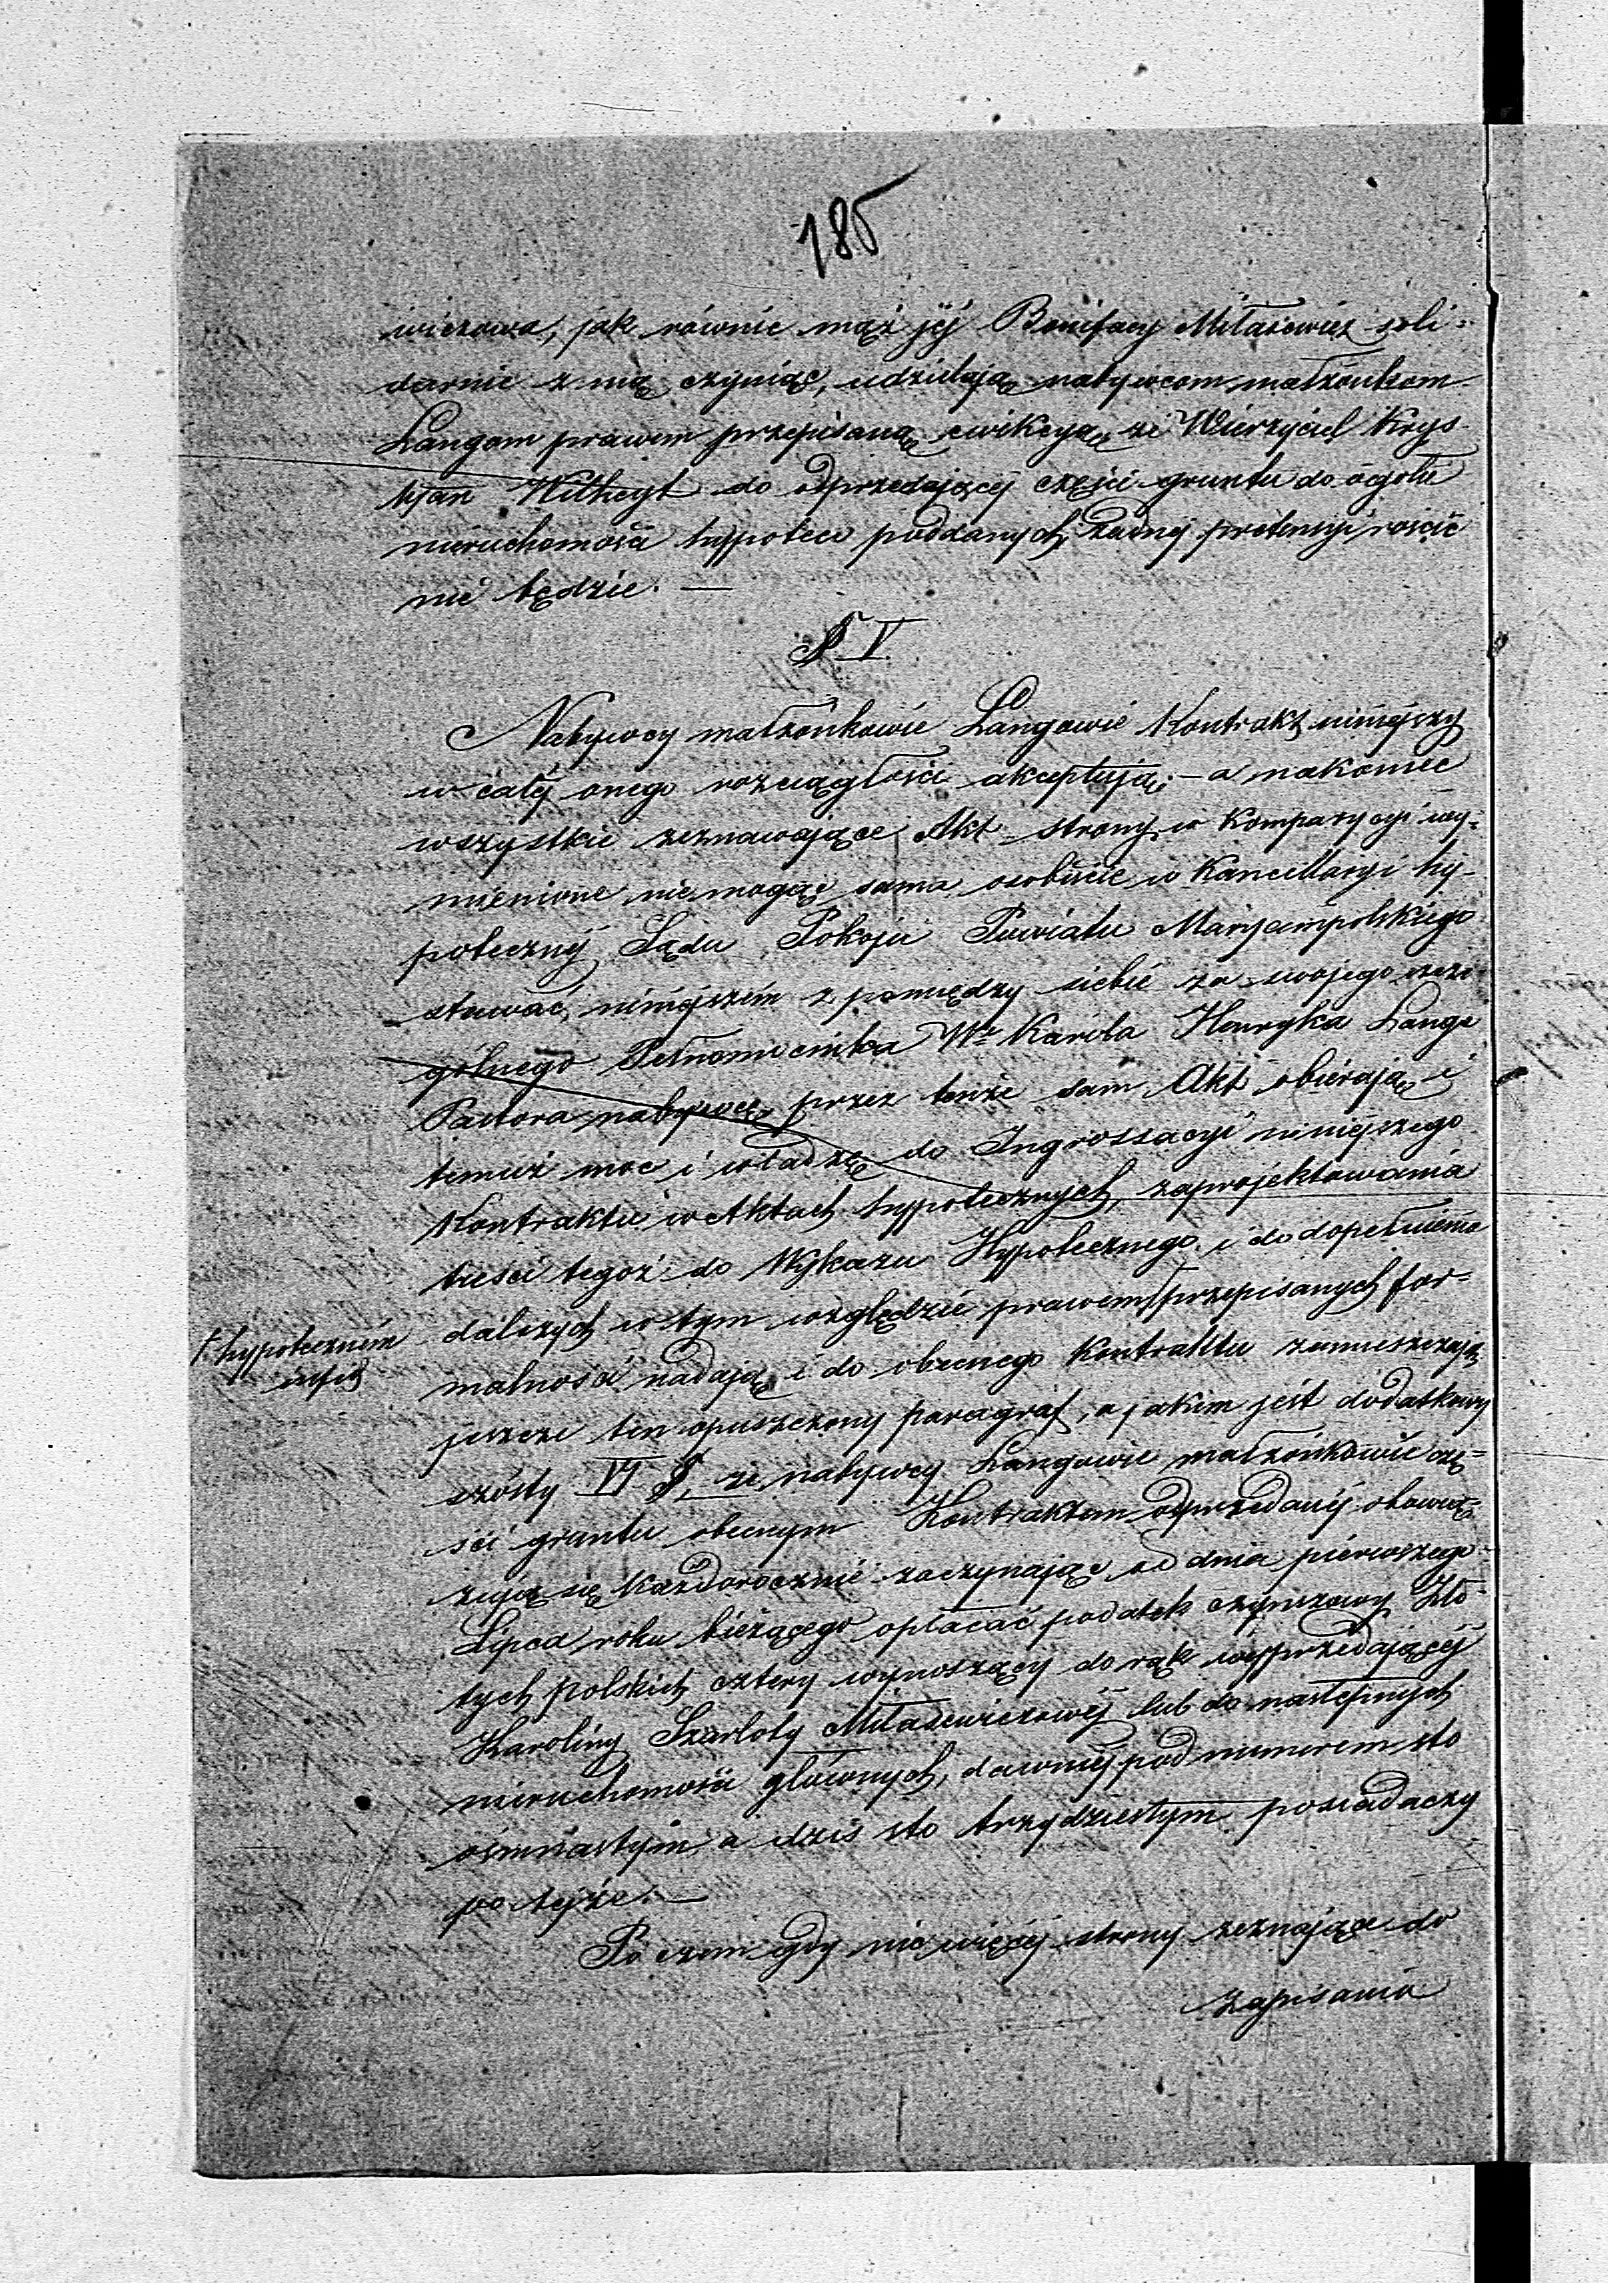 185
wiczowa, jak równie mąż jéj Bonifacy Miłaszewicz soli-
darnie z nią czyniąc, udzielają nabywcom małżonkom
Langom prawem przepisaną ewikcyą, że Wierzyciel Krys-
tyan do odprzedającej części gruntu do ogółu
nieruchomości hypotece poddanych, żadnéj pretensyi rościć
nie będzie. —
§ V
Nabywcy małżonkowie Langowie Kontrakt niniejszy
w całéj onego rozciągłości akceptują; – a nakoniec
wszystkie zeznawające Akt strony w Komparycyi wy-
mienione niemogąc same osobiście w Kancellaryi hy-
potecznéj Sądu Pokoju Powiatu Maryampolskiego
stawać, niniejszém z pomiędzy siebie za swojego szcze-
gólnego Pełnomocnika Wo Karola Henryka Lange
Pastora nabywcę, przez tenże sam Akt obierają i
temuż moc i władzę do Ingrossacyi niniejszego
Kontraktu w Aktach hypotecznych, zaprojektowania
treści tegoż do Wykazu Hypotecznego i do dopełnienia
dalszych w tym względzie prawem przepisanych for-
† hypoteczném
malności nadają, i do obecnego Kontraktu zamieszczają
jeszcze ten opuszczony paragraf, a jakim jest dodatkowy
szósty VI §, że nabywcy Langowie małżonkowie czę-
ści gruntu obecnym Kontraktem odprzedanéj obowią-
zują się każdorocznie zaczynając od dnia pierwszego
Lipca roku bieżącego opłacać podatek czynszowy Zło-
tych polskich cztery wynoszący do rąk wyprzedającéj
Karoliny Szarloty Miłaszewiczowéj lub do następnych
nieruchomości głównych, dawniéj pod numerem sto
ośmnastym a dziś sto trzydziestym posiadaczy
po tejże. —
Po czem gdy nic więcéj strony zeznające do
zapisania